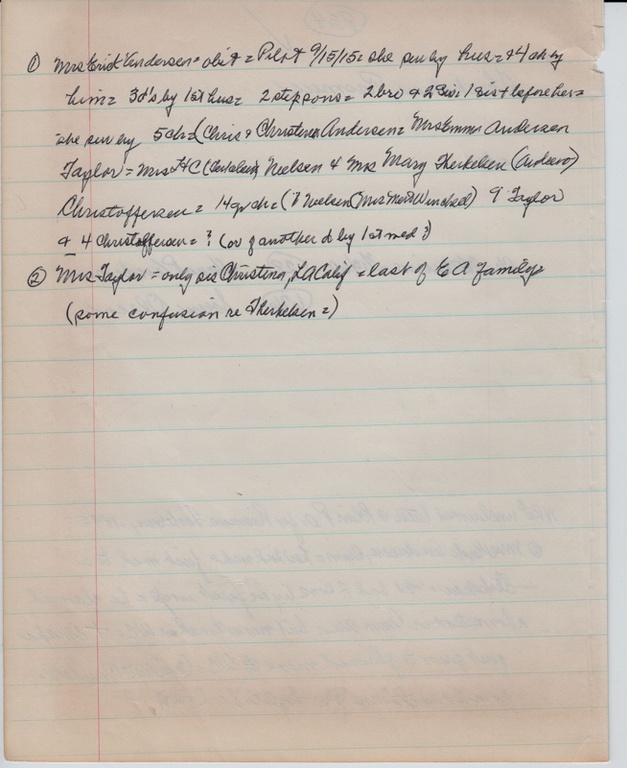 ① Mrs Erick Andersen = obit = Pilot 9/15/15 = she surv by hus = + 4 ch by
him = 3 d's by 1st hus = 2 stepsons = 2 bro + 2 sis = 1 sis + before her =
she surv by 5 ch = (Chris + Christina Andersen = Mrs Emma Andersen
Taylor = Mrs H C Nielsen + Mrs Mary Therkelsen (Anders)
Christoffersen = 14 gr ch = (1 Nielsen (Mrs Winsted) 9 Taylor
+ 4 Christoffersen = ? (or of another d by 1st med ?)
② Mrs Taylor = only sis Christina, LA Calif = last of E A family =
(some confusion re Therkelsen =)